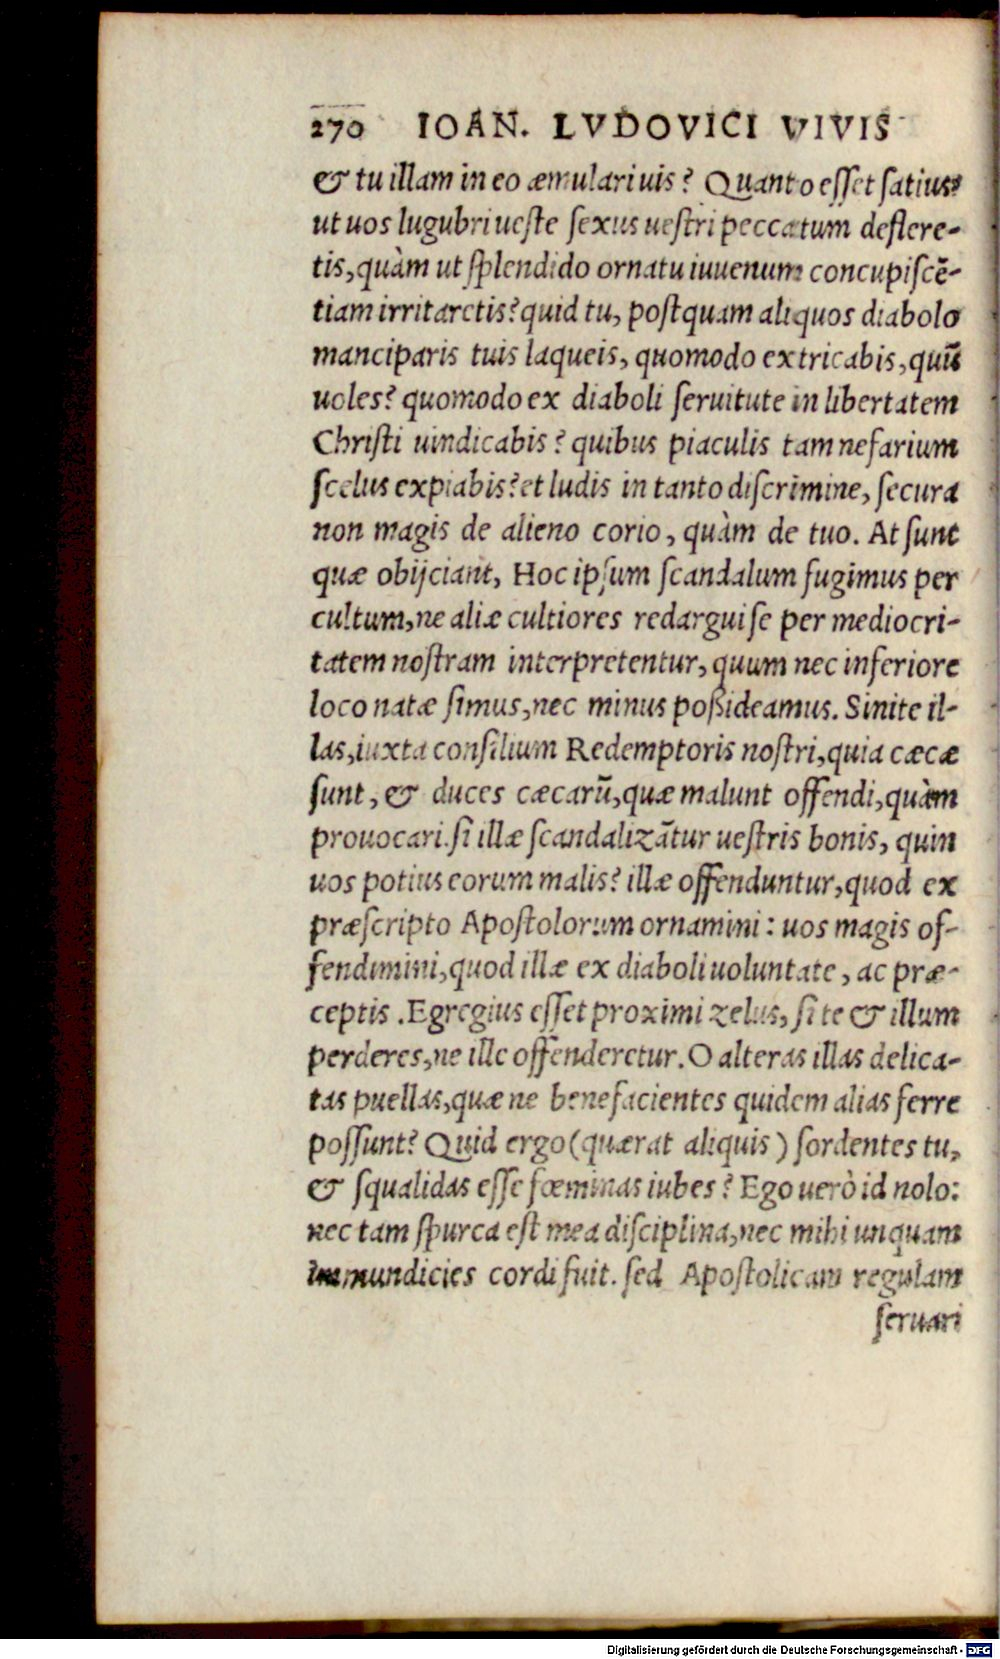 270 IOAN. LVDOVICI VIVIS
& tu illam in eo æmulari uis? Quanto esset satius,
ut uos lugubri ueste sexus uestri peccatum deflere-
tis, quàm ut splendido ornatu iuuenum concupiscē-
tiam irritaretis? quid tu, postquam aliquos diabolo
manciparis tuis laqueis, quomodo extricabis, quū
uoles? quomodo ex diaboli seruitute in libertatem
Christi uindicabis? quibus piaculis tam nefarium
scelus expiabis? et ludis in tanto discrimine, secura
non magis de alieno corio, quàm de tuo. At sunt
quæ obijciant, Hoc ipsum scandalum fugimus per
cultum, ne aliæ cultiores redargui se per mediocri-
tatem nostram interpretentur, quum nec inferiore
loco natæ simus, nec minus poßideamus. Sinite il-
las, iuxta consilium Redemptoris nostri, quia cæcæ
sunt, & duces cæcarū, quæ malunt offendi, quàm
prouocari. si illæ scandalizātur uestris bonis, quin
uos potius eorum malis? illæ offenduntur, quod ex
præscripto Apostolorum ornamini: uos magis of-
fendimini, quod illæ ex diaboli uoluntate, ac præ-
ceptis. Egregius esset proximi zelus, si te & illum
perderes, ne ille offenderetur. O alteras illas delica-
tas puellas, quæ ne benefacientes quidem alias ferre
possunt? Quid ergo (quærat aliquis) sordentes tu,
& squalidas esse fœminas iubes? Ego uerò id nolo:
nec tam spurca est mea disciplina, nec mihi unquam
immundicies cordi fuit. sed Apostolicam regulam
seruari
Digitalisierung gefördert durch die Deutsche Forschungsgemeinschaft - DFG